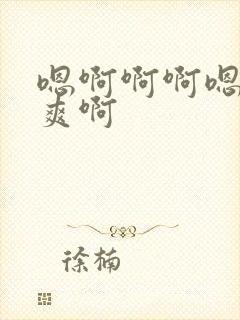 嗯啊啊啊嗯
爽啊
徐楠